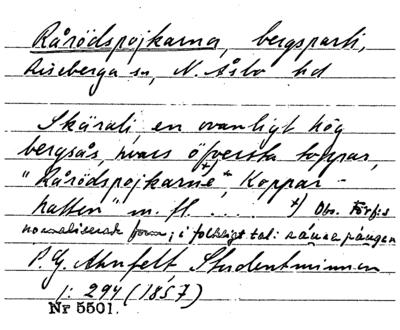 Rårödspojkarna, bergsparti,
Riseberga sn, N. Åsbo hd
Skäralid, en ovanligt hög
bergsås, hvars öfversta toppar,
"Rårödspojkarne +)", Koppar-
hatten" m. fl. . . . . . +) Obs. Förf:s
normaliserade form; i folkligt tal:
P. G. Ahnfelt, Studentminnen
1: 294 (1857)
Nr 5501.